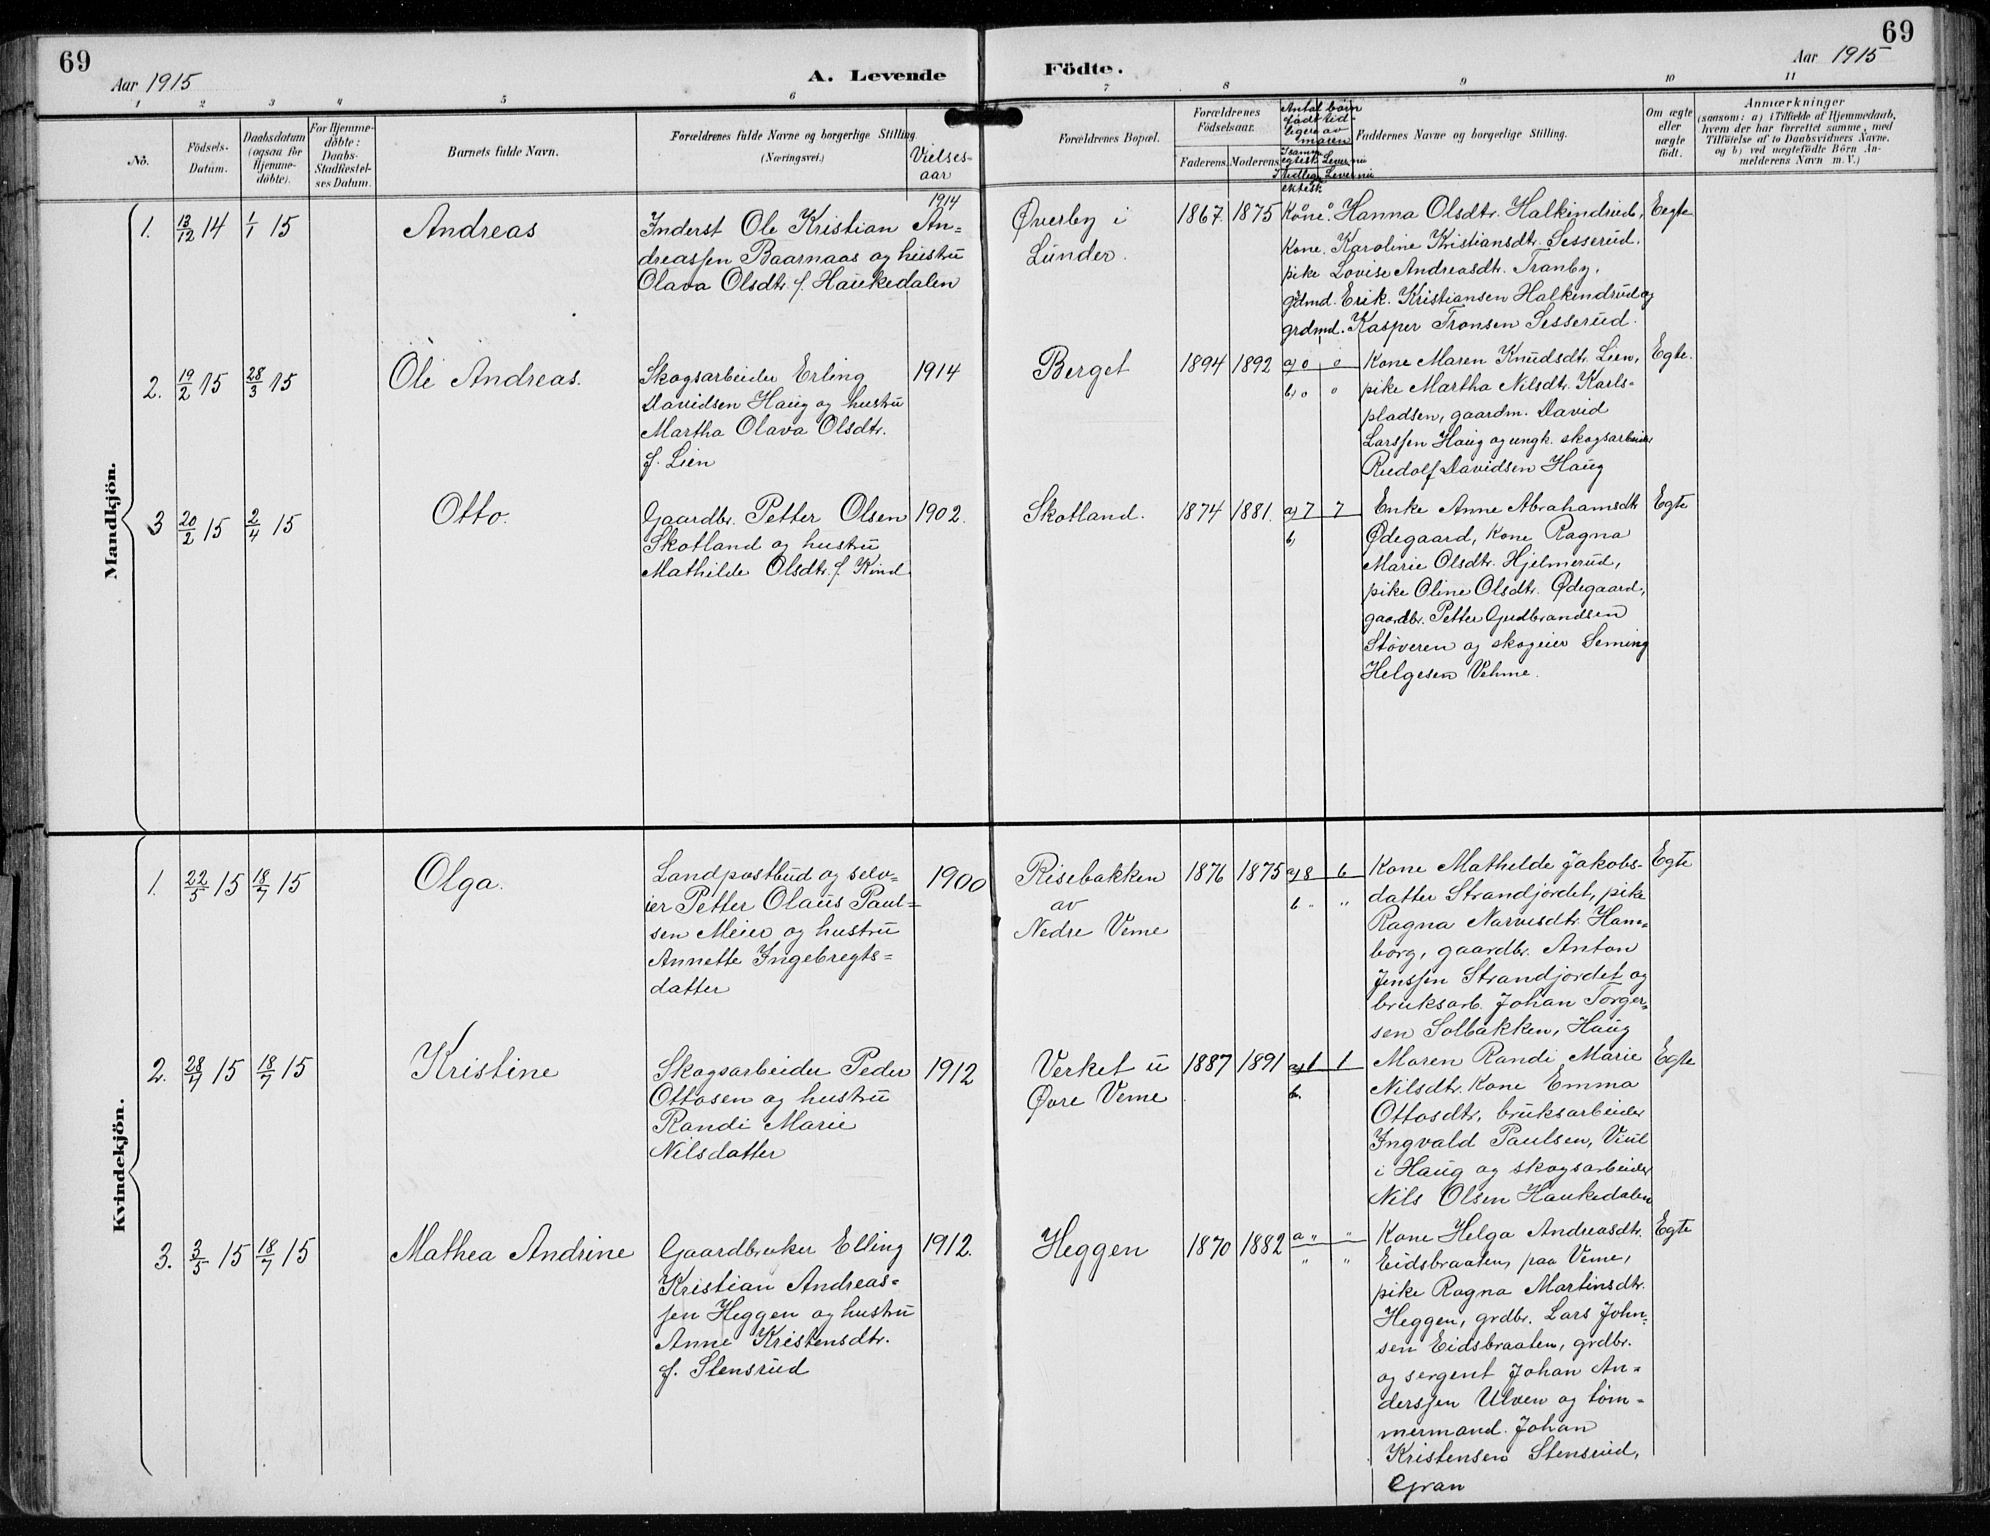 69
Aar 1915
A. Levende
Födte.
69
Aar 1915
1
2
3
4
5
6
7
8
9
10
11
No.
Födsels-
Datum.
Daabsdatum
(ogsaa för
Hjemme-
döbte).
For Hjemme-
döbte:
Daabs-
Stadfæstel-
ses Datum.
Barnets fulde Navn.
Forældrenes fulde Navne og borgerlige Stilling
(Næringsvei.)
Vielses-
aar
Forældrenes Bopæl.
Forældrenes
Födselsaar.
Faderens.
Moderens.
Antal börn
född tid-
ligere av
moren
Faddernes Navne og borgerlige Stilling.
Om ægte
eller
uægte
födt.
Anmærkninger
(saasom: a) i Tilfælde af Hjemmedaab,
hvem der har forrettet samme, med
Tilföielse af to Daabsvidners Navne,
og b) ved uægtefödte Börn An-
melderens Navn m. V.)
Mandkjön.
1.
13/12 14
1/1 15
Andreas
Inderst Ole Kristian An-
dreassen Baarnaas og hustru
Olava Olsdtr. f. Haukedalen
1914
Øverby i
Lunder.
1867.
1875
Kone. Hanna Olsdtr. Halkindrud,
kone. Karoline Kristiansdtr. Sesserud.
pike Lovise Andreasdtr. Tranby,
gdmd. Erik. Kristiansen Halkindrud og
grdmd. Kasper Tronsen Sesserud.
Eegte
2.
19/2 15
28/3 15
Ole Andreas.
Skogsarbeider Erling
Davidsen Haug og hustru
Martha Olava Olsdtr.
f. Lien
1914
Berget
1894
1892
a) 0 0
b) 0 0
Kone Maren Knudsdtr. Lien,
pike Martha Nilsdtr. Karls-
pladsen, gaardm. David
Larssen Haug og ungk. skogsarbeider
Rudolf Davidsen Haug
Egte.
3
20/2 15
2/4 15
Otto.
Gaardbr. Petter Olsen
Skotland og hustru
Mathilde Olsdtr. f. Kind
1902.
Skotland.
1874
1881.
a) 7 7
b)
Enke Anne Abrahamsdtr
Ødegaard, kone Ragna
Marie Olsdtr. Hjelmerud,
pike Oline Olsdtr. Ødegaard,
gaardbr. Petter Gudbrandsen
Støveren og skogeier Seming
Helgesen Vehme.
Egte
Kvindekjön.
1.
22/5 15
18/7 15
Olga.
Landpostbud og selv-
eier Petter Olaus Paul-
sen Meier og hustru
Annette Ingebregts-
datter
1900
Risebakken
av
Nedre Veme
1876
1875
a) 8 6
b " "
Kone Mathilde Jakobs-
datter Strandjordet, pike
Ragna Narvesdtr. Ham-
borg, gaardbr. Anton
Jenssen Strandjordet og
bruksarb. Johan Torger-
sen Solbakken, Haug
Egte
2.
28/4 15
18/7 15
Kristine
Skogsarbeider Peder
Ottosen og hustru
Randi Marie
Nilsdatter
1912
Verket u
Øvre Veme
1887
1891
a) 1 1
b.
Moren Randi Marie
Nilsdtr. kone Emma
Ottosdtr, bruksarbeider
Ingvald Paulsen, Viul
i Haug og skogsarbeider
Nils Olsen Haukedalen
Egte
3.
3/5 15
18/7 15
Mathea Andrine
Gaardbruker Elling
Kristian Andreas-
sen Heggen og hustru
Anne Kristensdtr.
f. Stensrud
1912.
Heggen
1870
1882
a " "
" "
Kone Helga Andreasdtr.
Eidsbraaten, paa Veme,
pike Ragna Martinsdtr.
Heggen, grdbr. Lars John-
sen Eidsbraaten, grdbr.
og sergent Johan An-
derssen Ulven og tøm-
mermand. Johan
Kristensen Stensrud,
Gran
Egte